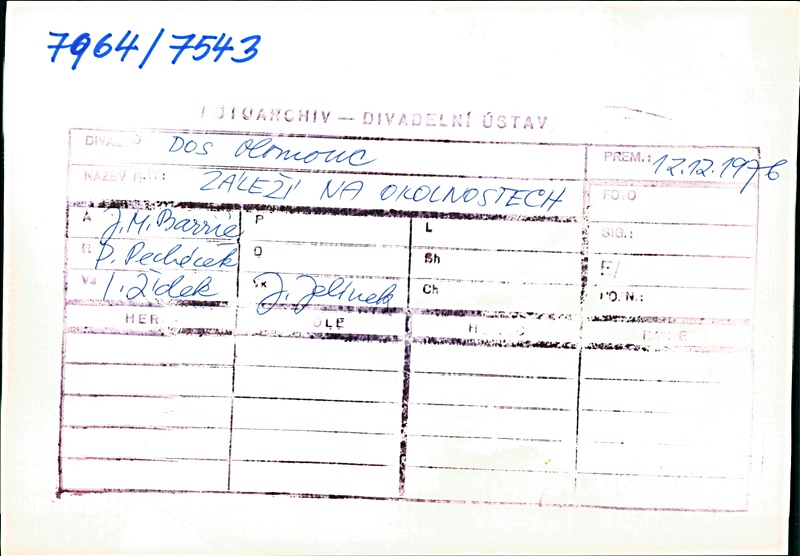 7964/7543
FOTOARCHIV — DIVADELNÍ ÚSTAV
DIVADLO DOS Olomouc PREM.: 12.12.1976
NÁZEV HRY: ZÁLEŽÍ NA OKOLNOSTECH FOTO
A J.M. Barrie P L SIG.:
R P. Pecháček D Sh F/
Vs I. Žídek Sk J. Jelínek Ch PO. N.:
HER OLE